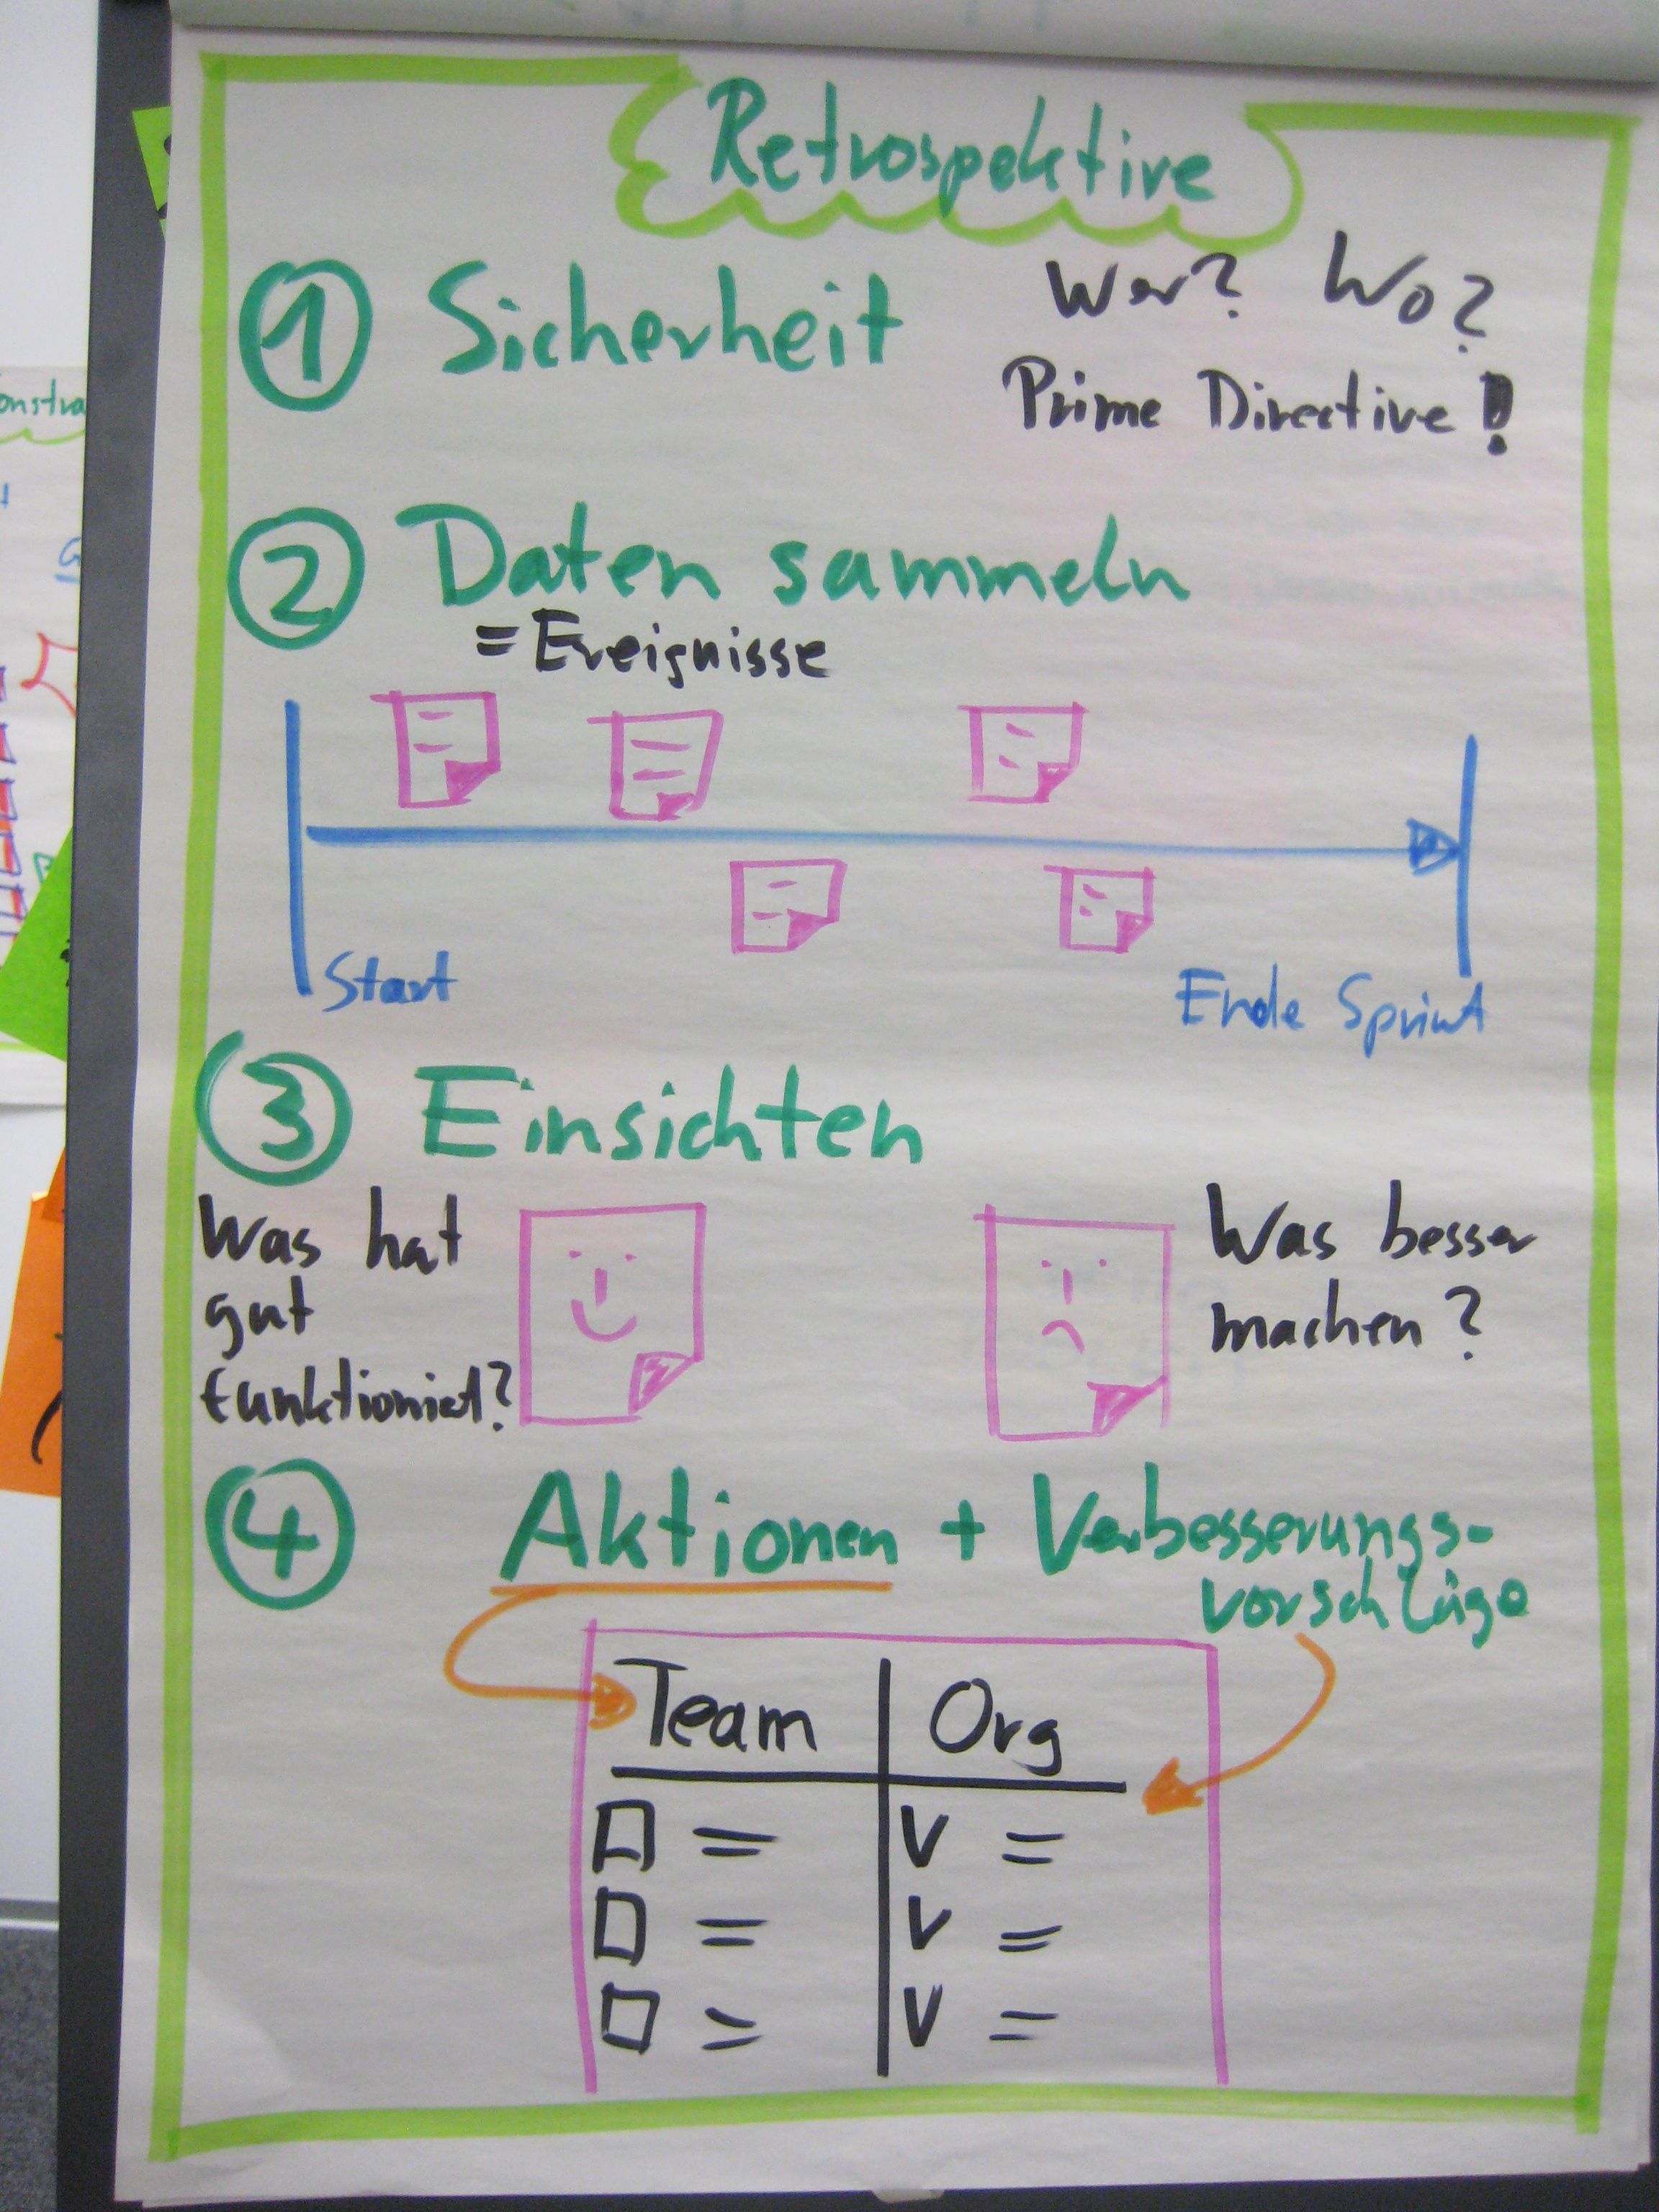 Retrospektive
① Sicherheit
Wer? Wo?
Prime Directive!
② Daten sammeln
= Ereignisse
Start
Ende Sprint
③ Einsichten
Was hat
gut
funktioniert?
Was besser
machen?
④ Aktionen + Verbesserungs-
vorschläge
Team | Org